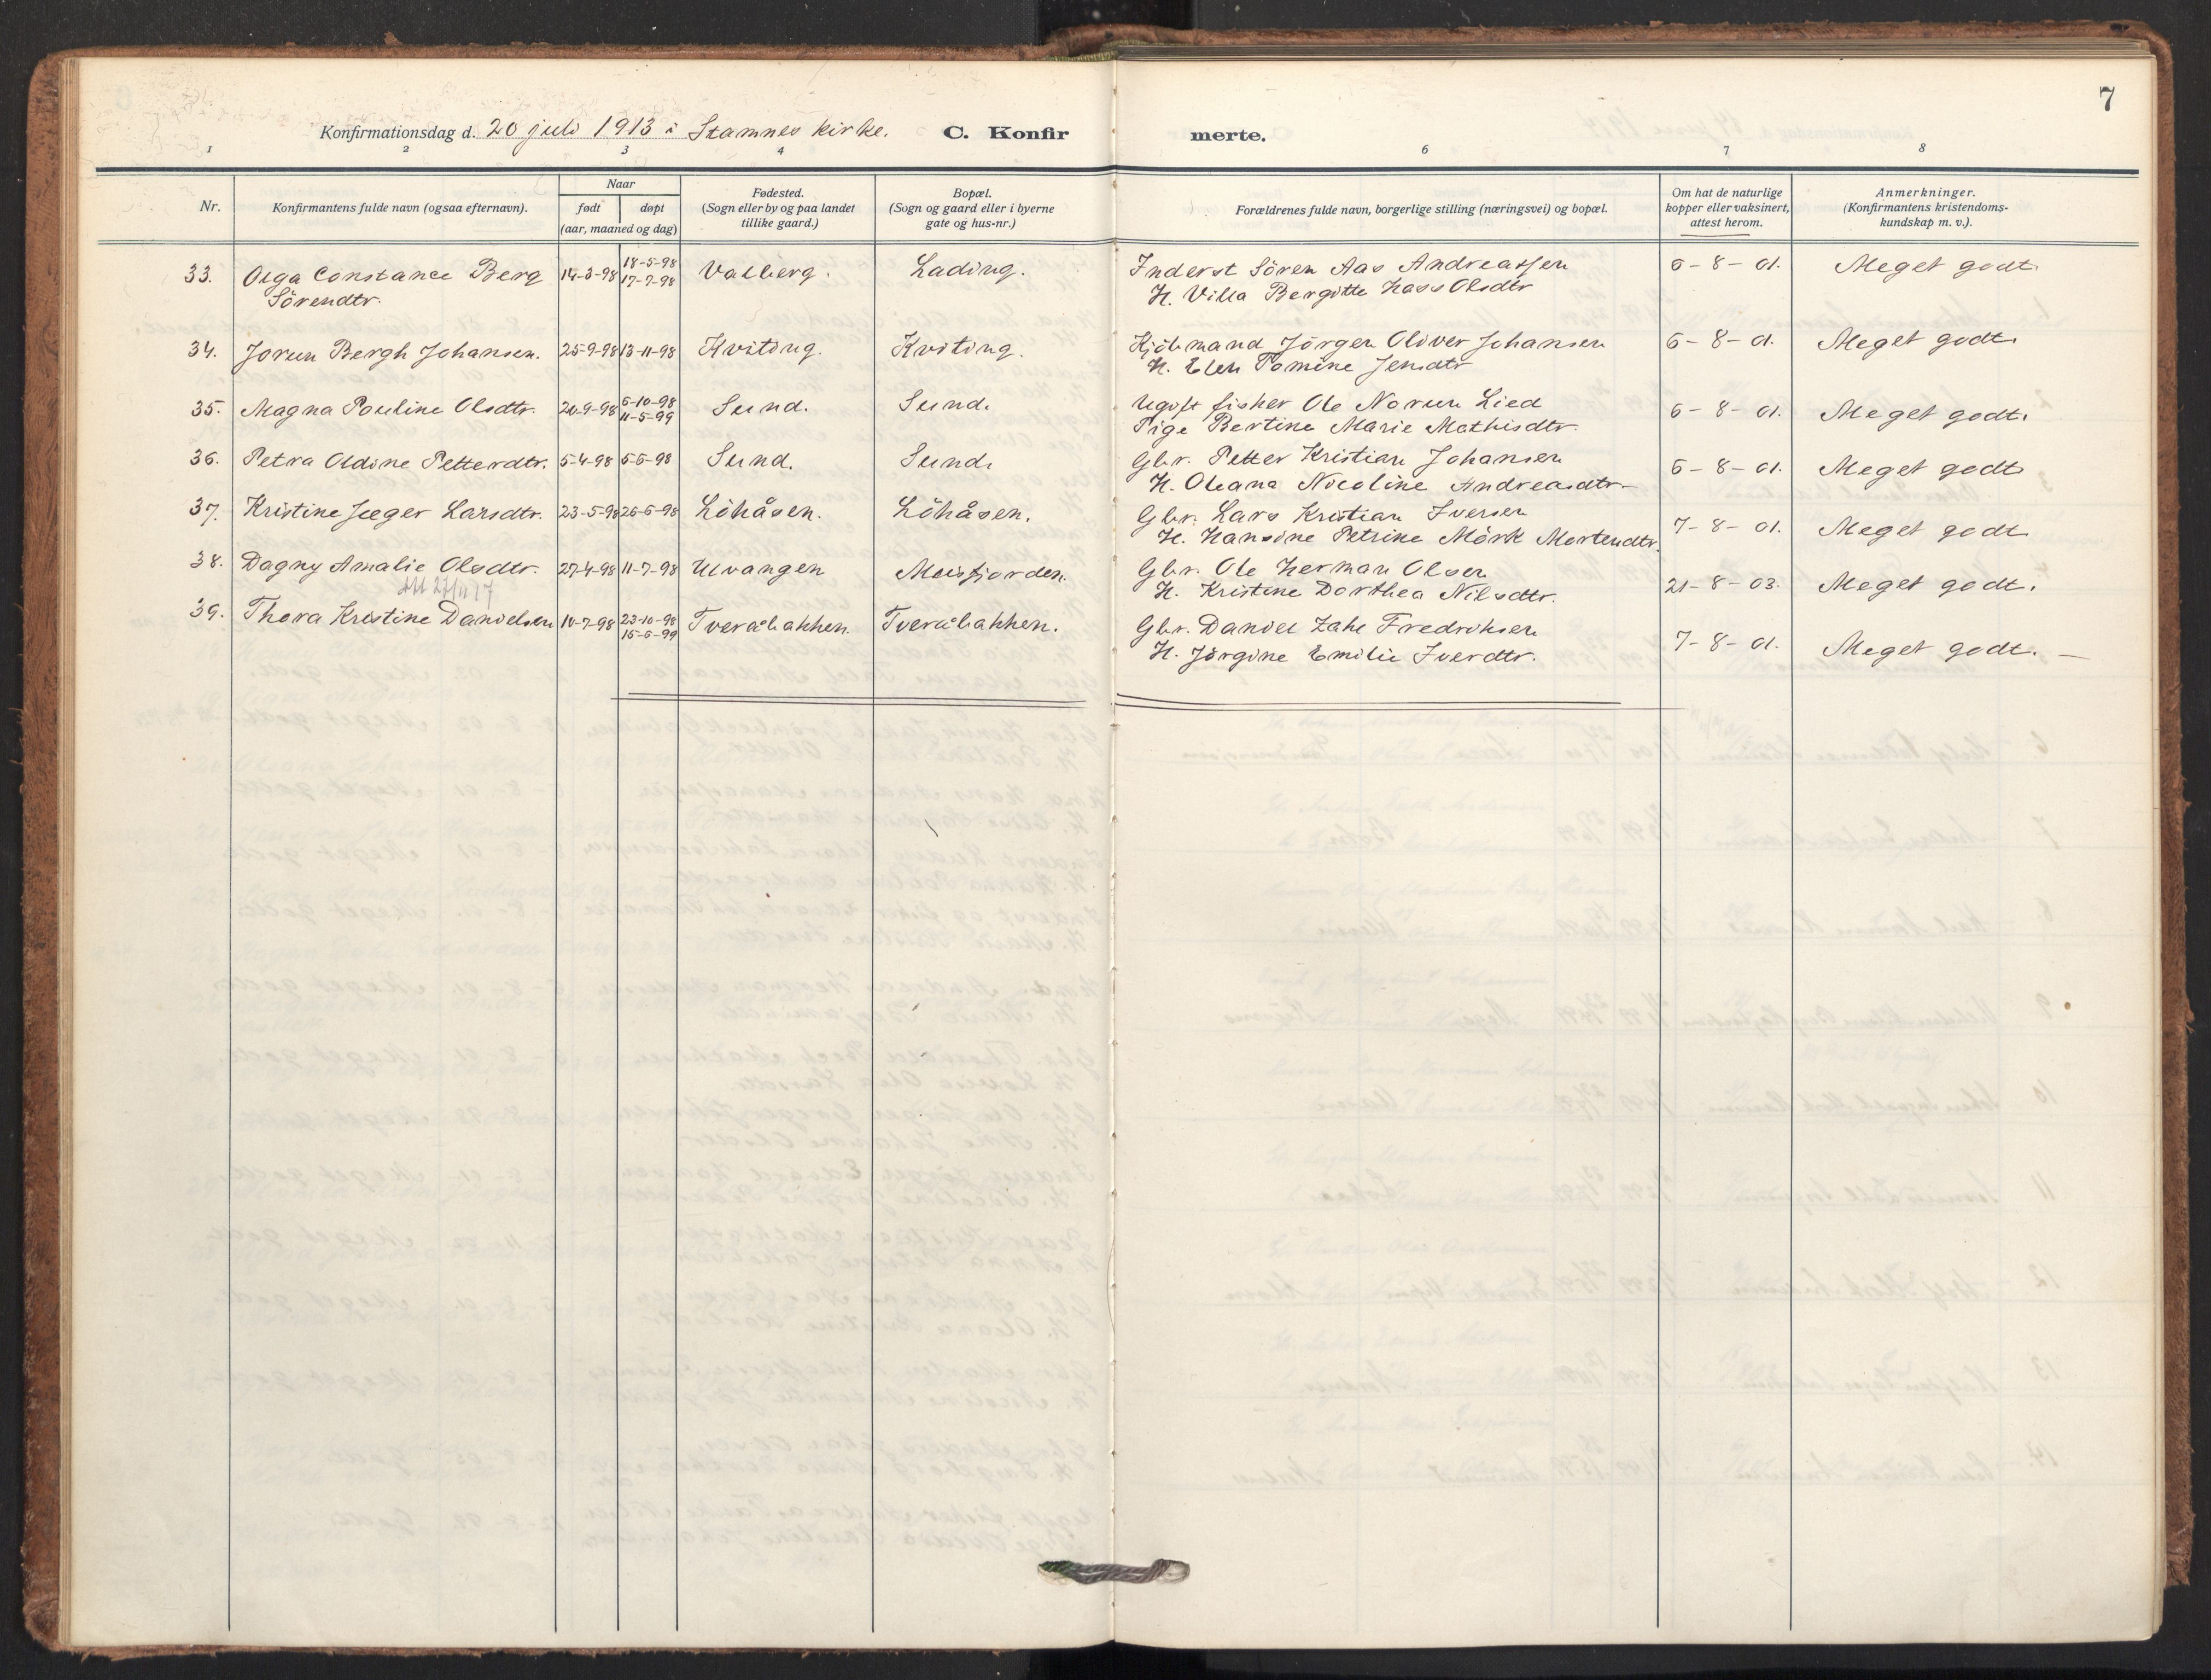 7
Konfirmationsdag d. 20 juli 1913 i Stamnes kirke. C. Konfir merte.
1 2 3 4 6 7 8
Nr.
Konfirmantens fulde navn (ogsaa efternavn).
Naar
født døpt
(aar, maaned og dag)
Fødested.
(Sogn eller by og paa landet
tillike gaard.)
Bopæl.
(Sogn og gaard eller i byerne
gate og hus-nr.)
Forældrenes fulde navn, borgerlige stilling (næringsvei) og bopæl.
Om hat de naturlige
kopper eller vaksinert,
attest herom.
Anmerkninger.
(Konfirmantens kristendoms-
kundskap m. v.).
33. Olga Constance Berg 14-3-98 18-5-98 Valberg. Lading. Inderst Sören Aas Andreassen 6-8-01. Meget godt.
Sörendtr. 17-7-98 H. Villa Bergitte Hass Olsdtr
34. Jorun Bergh Johansen. 25-9-98 13-11-98 Kviting. Kviting. Kjöbmand Jörgen Oliver Johansen 6-8-01. Meget godt.
H. Elen Tomine Jensdtr
35. Magna Pauline Olsdtr. 20-9-98 6-10-98 Sund. Sund. Ugift fisker Ole Norum Lied 6-8-01. Meget godt.
11-5-99 Pige Bertine Marie Mathisdtr.
36. Petra Oldine Petterdtr. 5-4-98 5-6-98 Sund. Sund. Gbr. Petter Kristian Johansen 6-8-01. Meget godt
H. Oleana Nicoline Andreasdtr-
37. Kristine Jæger Larsdtr. 23-5-98 26-6-98 Löhåsen. Löhåsen. Gbr. Lars Kristian Iversen 7-8-01. Meget godt
H. Hansine Petrine Mörk Mortendtr.
38. Dagny Amalie Olsdtr. 27-4-98 11-7-98 Ulvangen Meisfjorden. Gbr. Ole Herman Olsen 21-8-03. Meget godt.
27/11 17 H. Kristine Dorthea Nilsdtr.
39. Thora Kristine Danielsen 10-7-98 23-10-98 Tveråbakken. Tveråbakken. Gbr. Daniel Zahl Fredriksen 7-8-01. Meget godt. —
15-6-99 H. Jörgine Emilie Iverdtr.